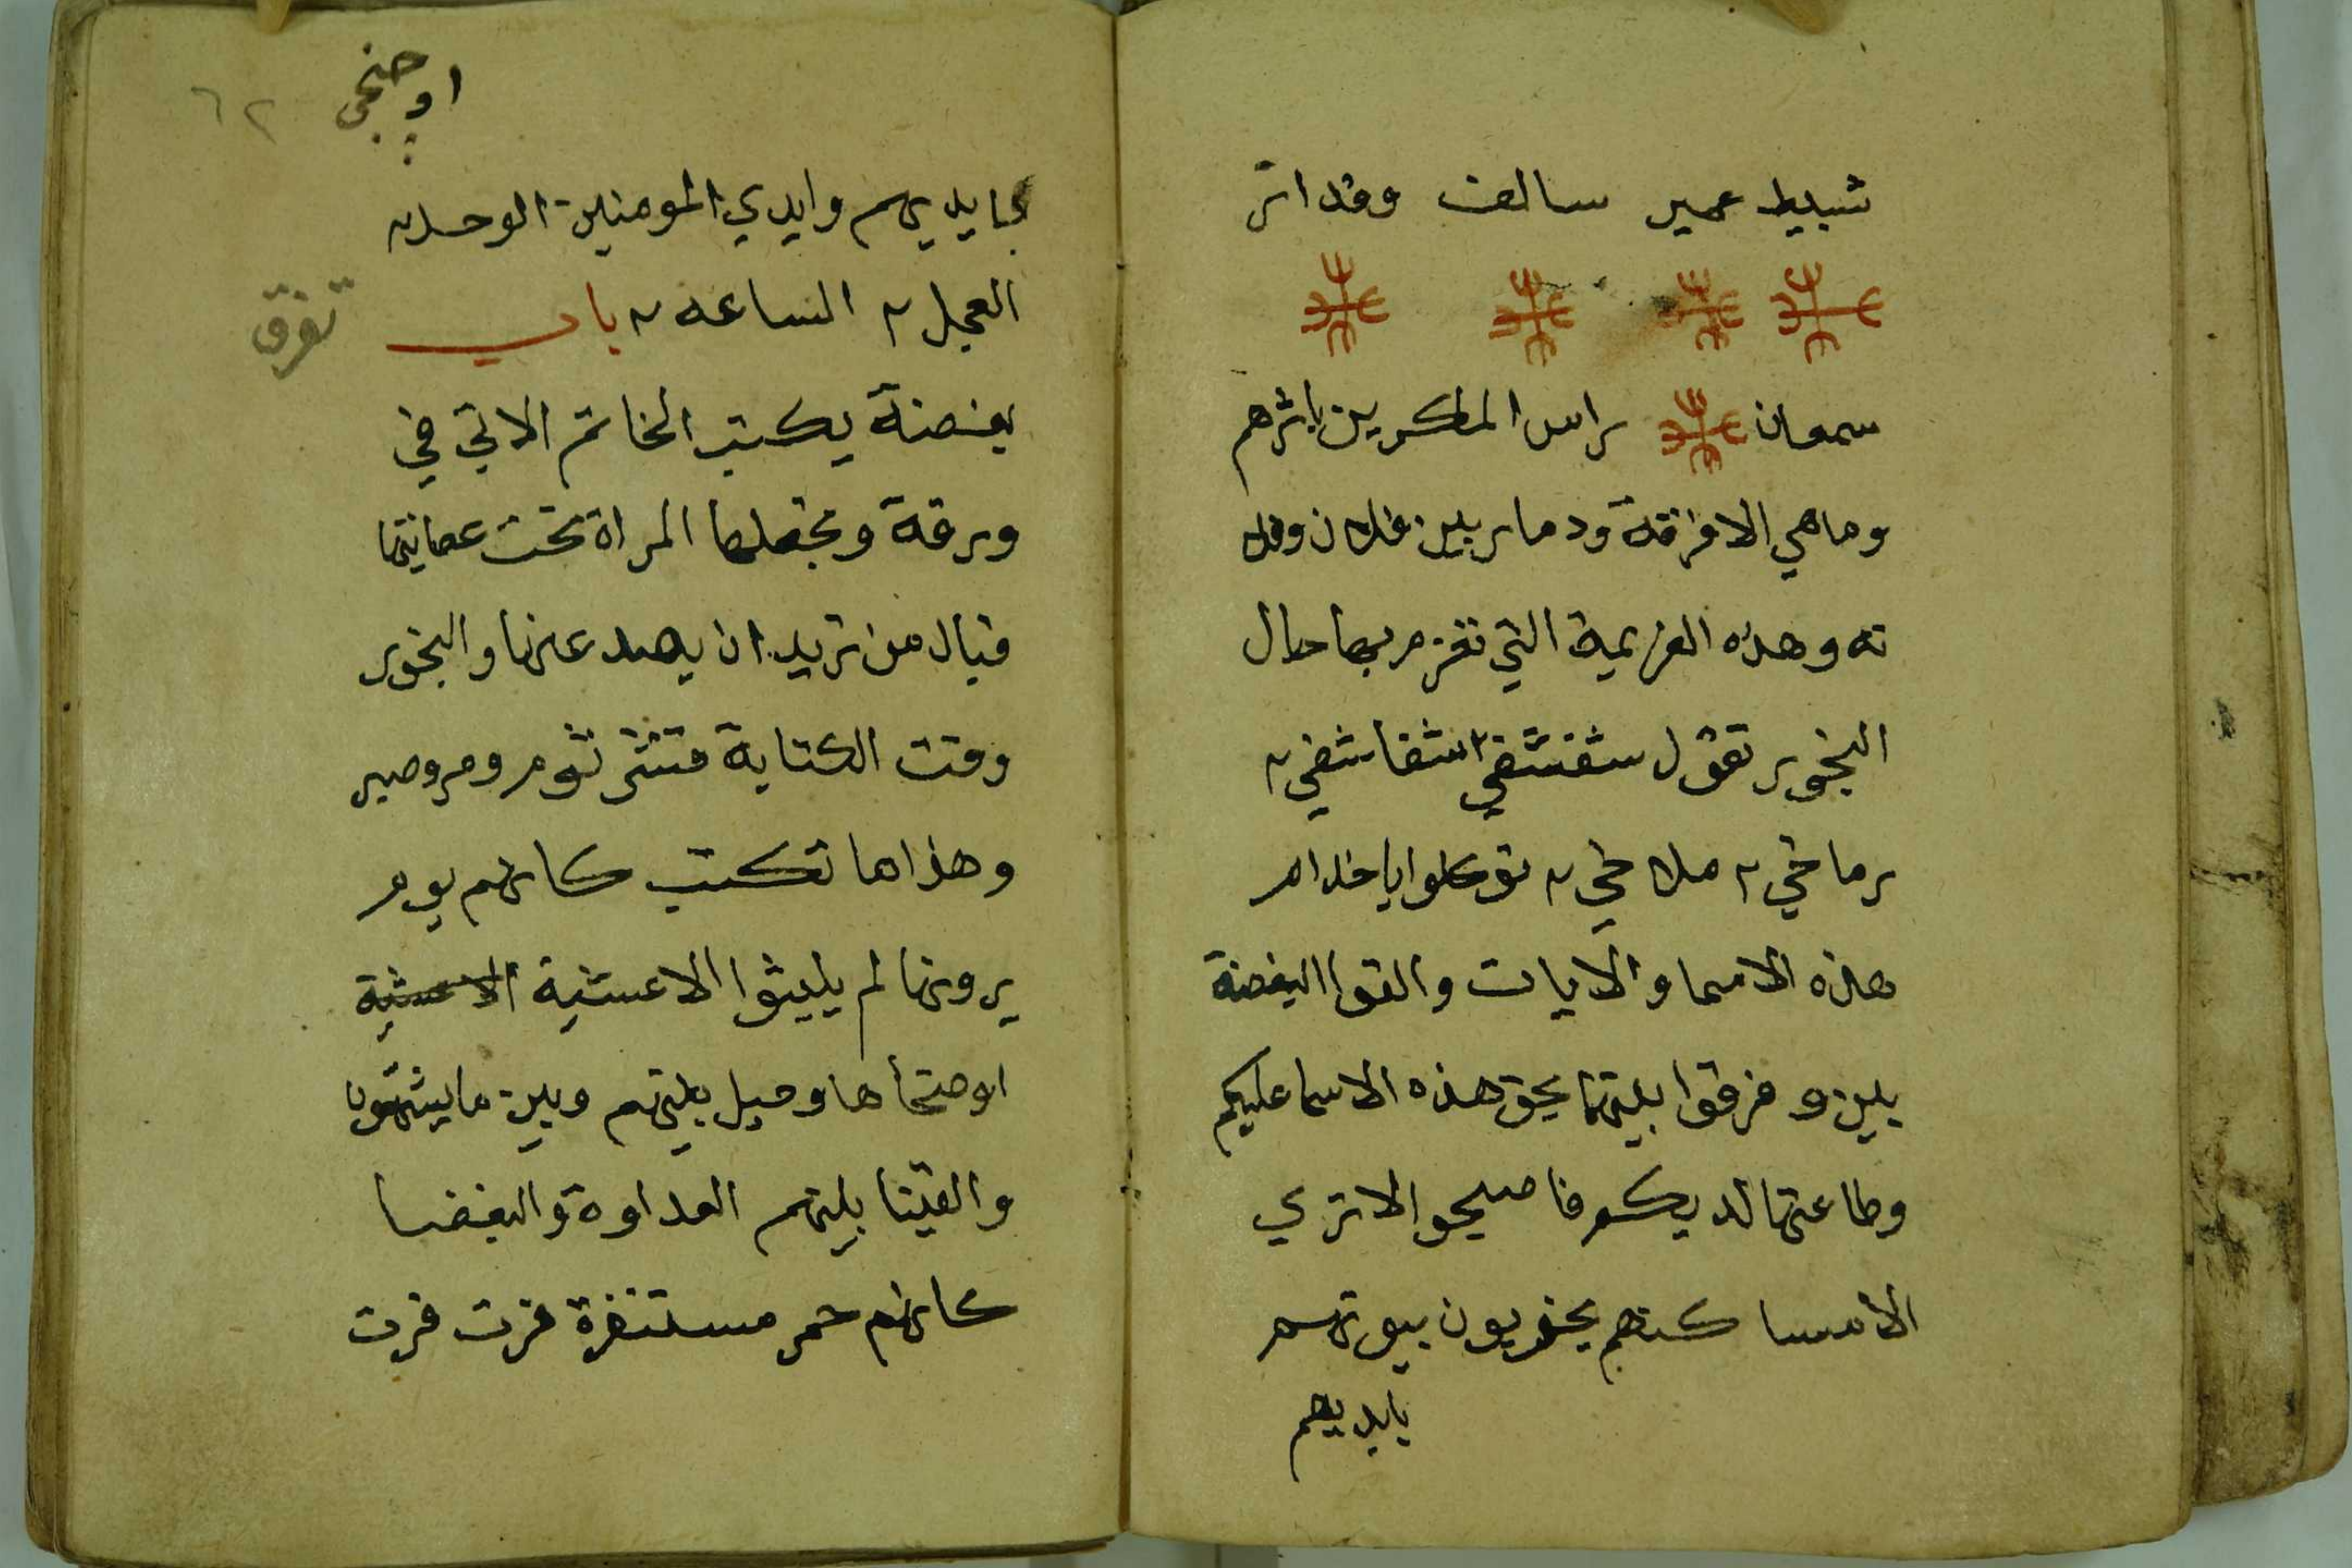 شبيط عمير سالف وقد اتر
سمعان راس المكرين باثرهم
وماهي الا فرقة ودمار بين فلان وفلا
نه وهذه العزيمة التي تعزم بها حال
البخور تقول شقشقي ٢ شفاشفي ٢
رماخي ٢ ملاخي ٢ توكلوا يا خدام
هذه الاسما والايات والقوا البغضة
بين و فرقوا بينهما بحق هذه الاسما عليكم
وطاعتها لديكم فاصبحوا لا ترى
الا مساكنهم يخربون بيوتهم
بايديهم
اوجنحى
٦٢
بايديهم وايدي المومنين الوحا ٢
العجل ٢ الساعه ٢ باب
تفرق
بغضة يكتب الخاتم الاتي في
ورقة وتجعلها المراة تحت عصابتها
قبال من تريد ان يصد عنها والبخور
وقت الكتابة قشر ثوم ومر وصبر
وهذا ما تكتب كانهم يوم
يرونها لم يلبثوا الا عشية الا عشية
او ضحاها وحيل بينهم وبين ما يشتهون
والقينا بينهم العداوة والبغضا
كانهم حمر مستنفرة فرت فرت